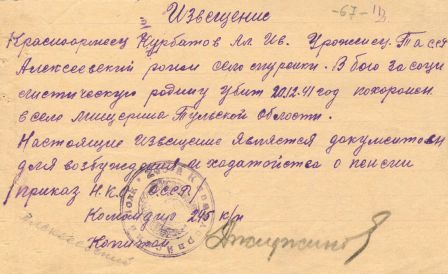 Извещение
-67-
Красноармеец Курбатов Ал. Ив. Урожнец. Тасср
Алексеевский район село шуровки. В бою за соци
листическую родину убит 20.12.41 год похоронен
в село Мищерина Тульской Области.
Настоящие извещение является документом
для возбуждения и ходатойства о пенсии
приказ Н.К.О. СССР
Командир 245 к/п
Алексеевский